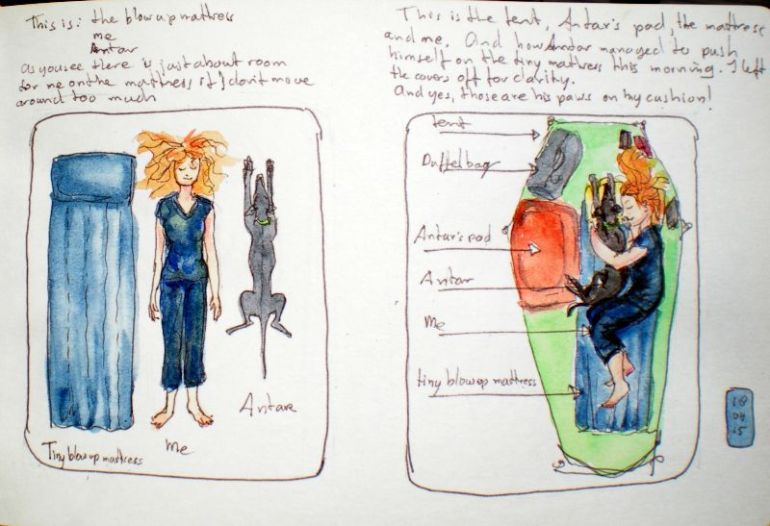 This is: the blow up mattress
me
Antar
as you see there is just about room
for me on the mattress if I don't move
around too much
Tiny blow up mattress
Me
Antar
This is the tent, Antar's pad, the mattress
and me. And how Antar managed to push
himself on the tiny mattress this morning. I left
the covers off for clarity.
And yes, those are his paws on my cushion!
tent
Duffel bag
Antar's pad
Antar
Me
tiny blow up mattress
18
04
15